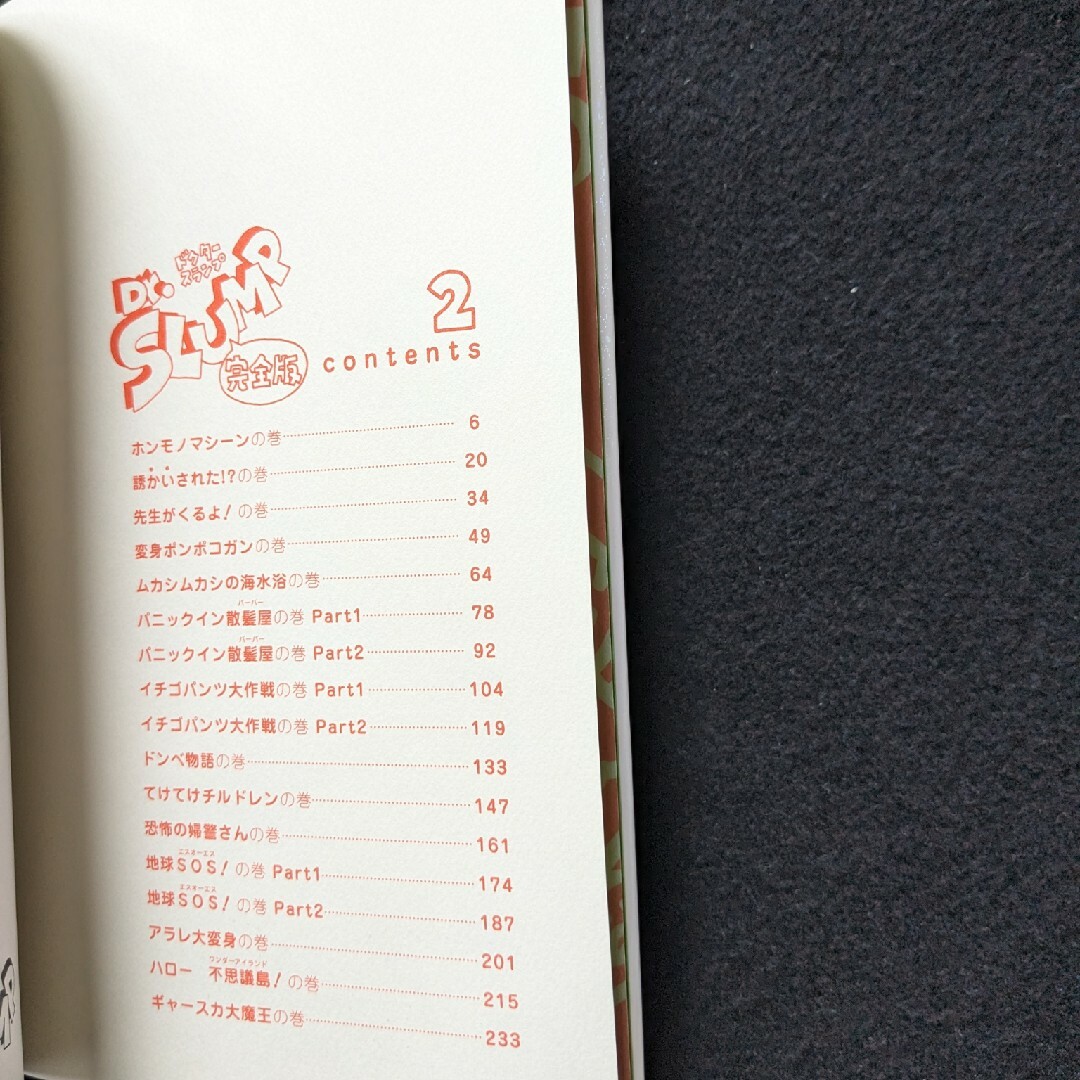 Dr.
ドクター
スランプ
SLUMP
完全版
2
contents
ホンモノマシーンの巻 6
誘かいされた!?の巻 20
先生がくるよ!の巻 34
変身ポンポコガンの巻 49
ムカシムカシの海水浴の巻 64
バーバー
パニックイン散髪屋の巻 Part1 78
バーバー
パニックイン散髪屋の巻 Part2 92
イチゴパンツ大作戦の巻 Part1 104
イチゴパンツ大作戦の巻 Part2 119
ドンベ物語の巻 133
てけてけチルドレンの巻 147
恐怖の婦警さんの巻 161
エスオーエス
地球SOS!の巻 Part1 174
エスオーエス
地球SOS!の巻 Part2 187
アラレ大変身の巻 201
ワンダーアイランド
ハロー 不思議島!の巻 215
ギャースカ大魔王の巻 233